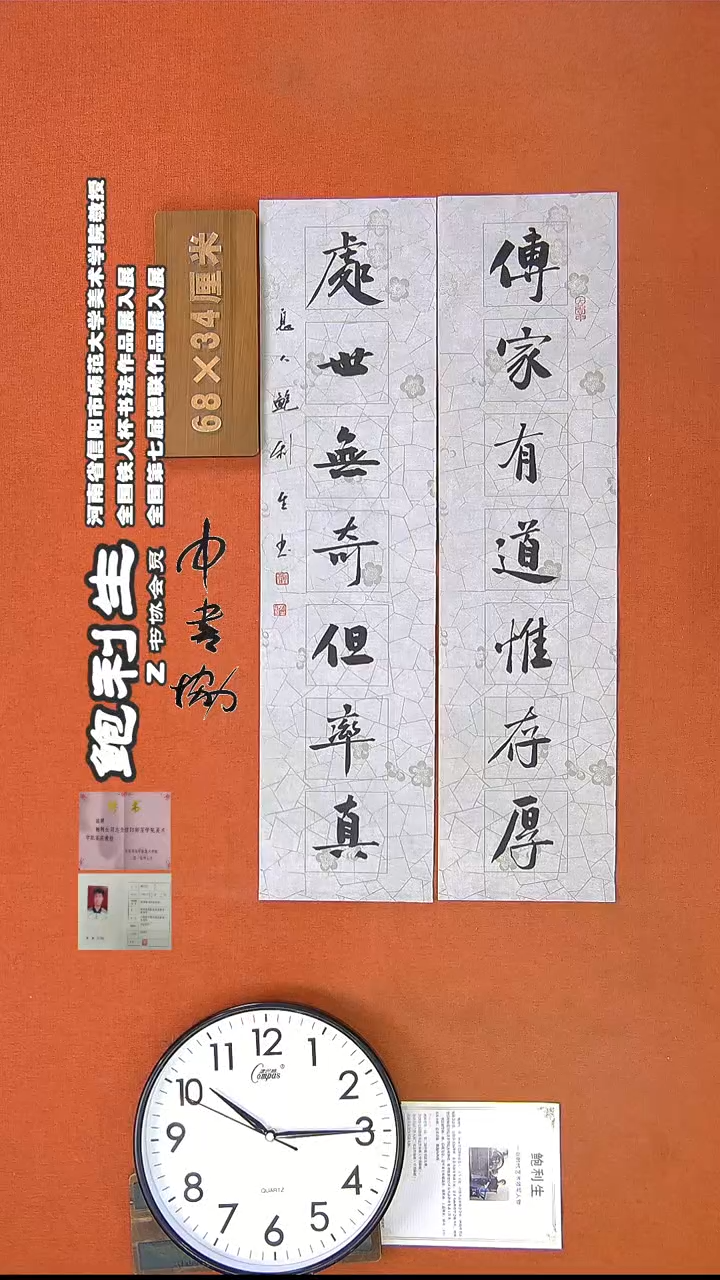 傳家有道惟存厚
處世無奇但率真
長人鮑利生書
68×34厘米
河南省信阳市师范大学美术学院教授
全国铁人杯书法作品展入展
全国第七届楹联作品展入展
鲍利生
Z 书协会员
中书协
证书
12
1
2
3
4
5
6
7
8
9
10
11
Compas
QUARTZ
鲍利生